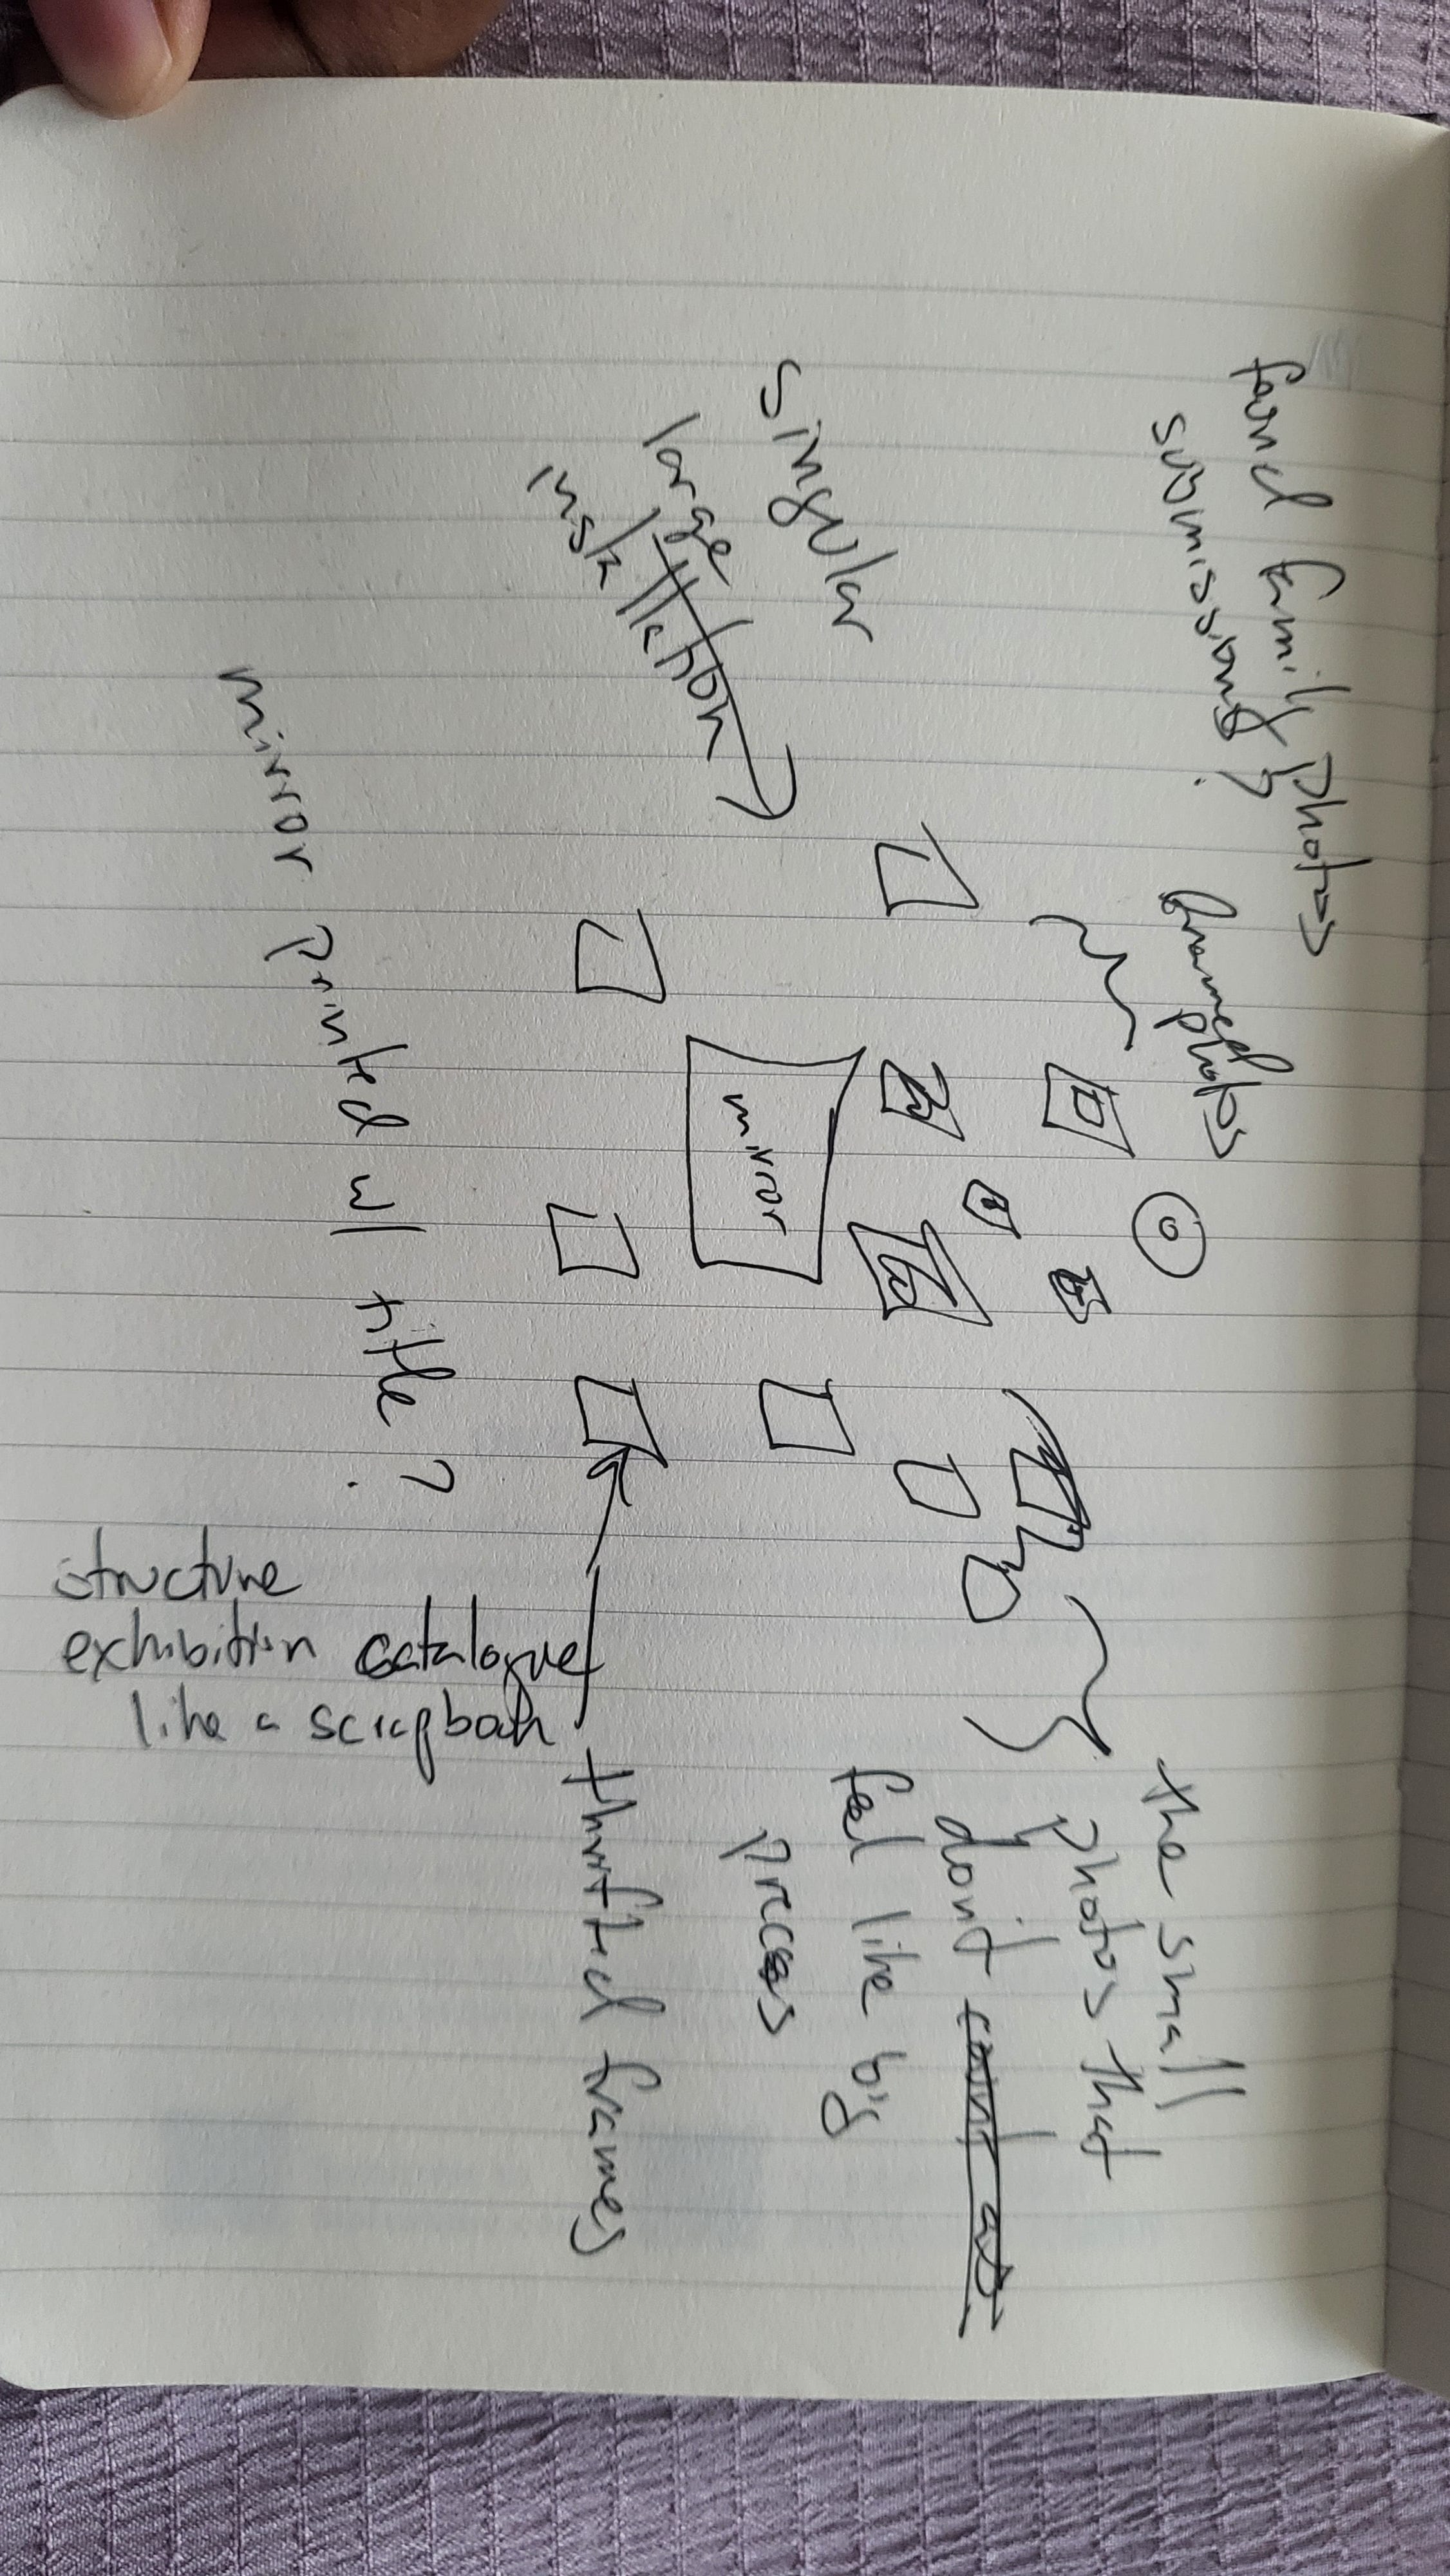 found family photos
submissions?
framed
photos
singular
large
installation
mirror
the small
photos that
don't
feel like big
pieces
thrifted frames
mirror printed w/ title?
structure
exhibition catalogue
like a scrapbook